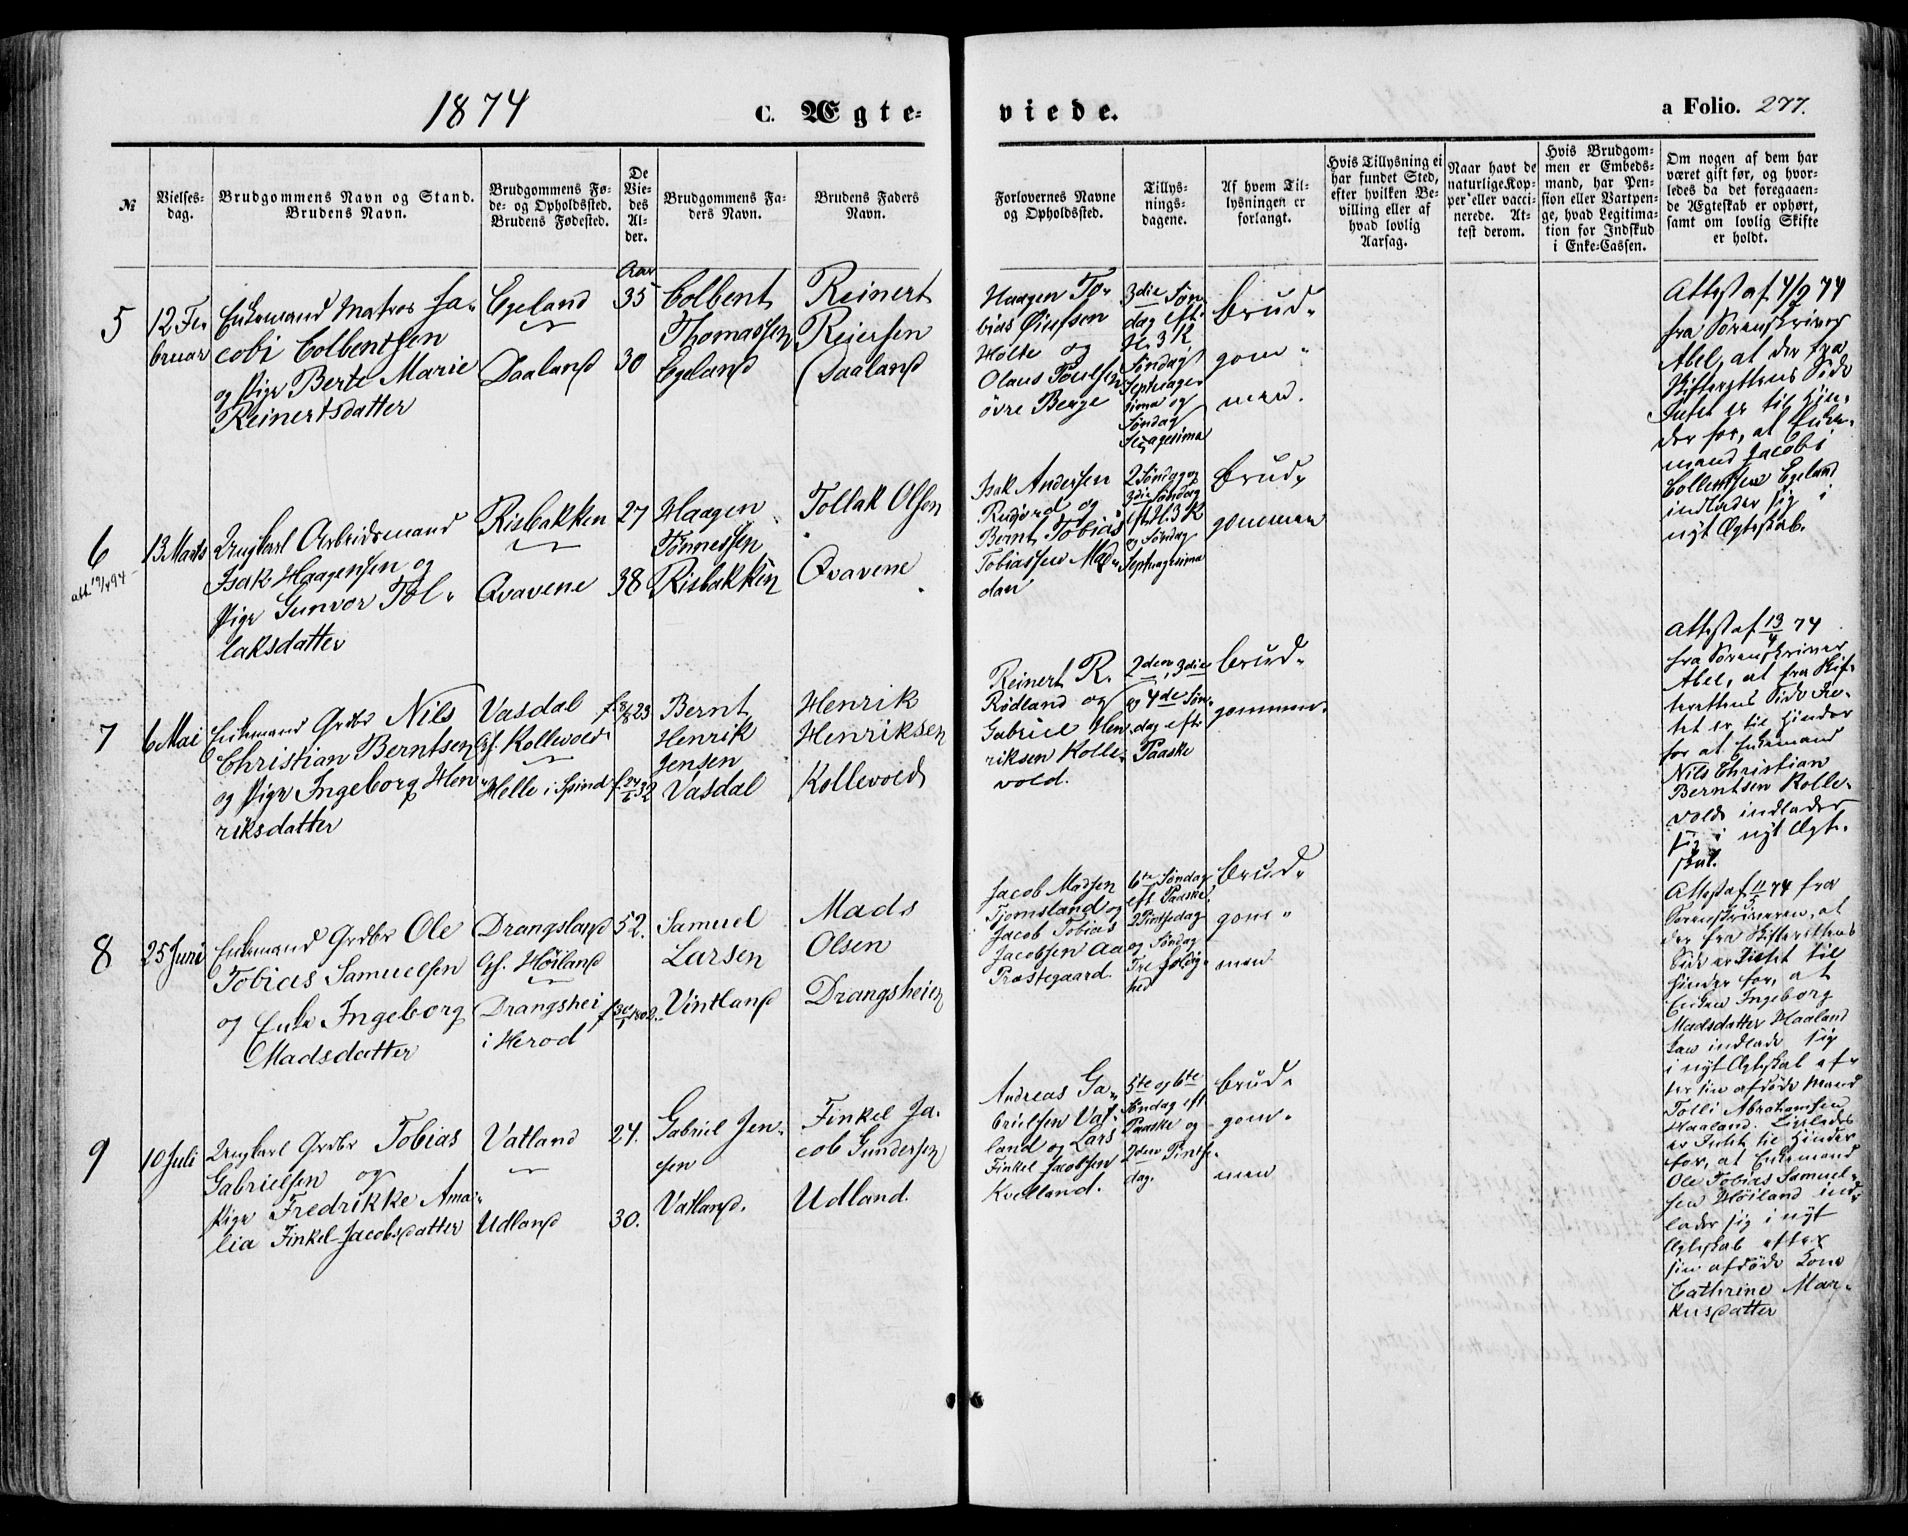 1874
C. Ægte-
viede.
a Folio. 277.
№
Vielses-
dag.
Brudgommens Navn og Stand.
Brudens Navn.
Brudgommens Fø-
de- og Opholdssted.
Brudens Fødested.
De
Vie-
des
Al-
der.
Brudgommens Fa-
ders Navn.
Brudens Faders
Navn.
Forlovernes Navne
og Opholdssted.
Tillys-
nings-
dagene.
Af hvem Til-
lysningen er
forlangt.
Hvis Tillysning ei
har fundet Sted,
efter hvilken Be-
villing eller af
hvad lovlig
Aarsag.
Naar havt de
naturlige Kop-
per eller vacci-
nerede. At-
test derom.
Hvis Brudgom-
men er Embeds-
mand, har Pen-
sion eller Vartpen-
ge, hvad Legitima-
tion for Indskud
i Enke-Cassen.
Om nogen af dem har
været gift før, og hvor-
ledes da det foregaaen-
de Ægteskab er ophørt,
samt om lovlig Skifte
er holdt.
5
12 Fe-
bruar
Enkemand Matros Ja-
cobi Colbentsen
og Pige Berte Marie
Reinertsdatter
Egeland
Saaland
Aar
35
30
Colbent
Thomassen
Egeland
Reinert
Reiersen
Saaland
Haagen To-
bias
Holte og
Olaus Poulsen
øvre Berge
3die Søn-
dag eft.
H. 3 K.
Søndag
Septuage-
sima og
Søndag
Sexagesima
Brud-
gom-
men.
Attest af 4/2 74
fra Sorenskriver
Abel, at der fra
Skifterettens Side
Intet er til Hin-
der for, at Enke-
mand Jacobi
Colbentsen Egeland
indlader sig i
nyt Ægteskab.
6
13 Marts
Ungkarl Arbeidsmand
Isak Haagensen og
Pige Gunvor Tol-
laksdatter
Risbakken
Qvavene
27
38
Haagen
Tønnessen
Risbakken
Tollak Olsen
Qvavene
Isak Andersen
Rudjord og
Bernt Tobias
Tobiassen Mad-
dan
2 Søndag og
3die Søndag
eft. H. 3 K
og Søndag
Septuagesima
Brud-
gommen
7
6 Mai
Enkemand Grdbr Nils
Christian Berntsen
og Pige Ingeborg Hen-
riksdatter
Vasdal
Gf. Kollevold
Helle i Spind
Bernt
Henrik
Jensen
Vasdal
Henrik
Henriksen
Kollevold
Reinert R.
Rødland og
Gabriel Hen-
riksen Kolle-
vold.
2den, 3die
og 4de Søn-
dag eft.
Paaske
Brud-
gommen.
Attest af 13/4 74
fra Sorenskriver
Abel, at fra Skif-
terettens Side In-
tet er til Hinder
for at Enkemand
Nils Christian
Berntsen Kolle-
vold indlader
sig i nyt Ægte-
skab.
8
25 Juni
Enkemand Grdbr Ole
Tobias Samuelsen
og Enke Ingeborg
Madsdatter
Drangsland
Gf. Høiland
Drangshei
i Herod
52.
Samuel
Larsen
Vintland
Mads
Olsen
Drangsheien
Jacob Madsen
Tjomsland og
Jacob Tobias
Jacobsen Aa
Præstegaard.
6te Søndag
eft. Paaske,
2 Pintsedag
og Søndag
Trefoldig-
hed
Brud-
gom-
men
Attest af 11/5 74 fra
Sorenskriveren, at
der fra Skifterettens
Side er Intet til
Hinder for, at
Enken Ingeborg
Madsdatter Haaland
kan indlade sig
i nyt Ægteskab ef-
ter sin afdøde Mand
Tolli Abrahamsen
Haaland. Ligeledes
er Intet til Hinder
for, at Enkemand
Ole Tobias Samuel-
sen Høiland ind-
lader sig i nyt
Ægteskab efter
sin afdøde Kone
Cathrine Mar-
kusdatter
9
10 Juli
Ungkarl Grdbr Tobias
Gabrielsen og
Pige Fredrikke Ama-
lia Finkel-Jacobsdatter
Vatland
Udland
24.
30.
Gabriel Jen-
sen
Vatland.
Finkel Ja-
cob Gundersen
Udland.
Andreas Ga-
brielsen Vat-
land og Lars
Finkel Jacobsen
Kvelland.
5te og 6te
Søndag eft
Paaske og
2den Pintse-
dag.
Brud-
gom-
men